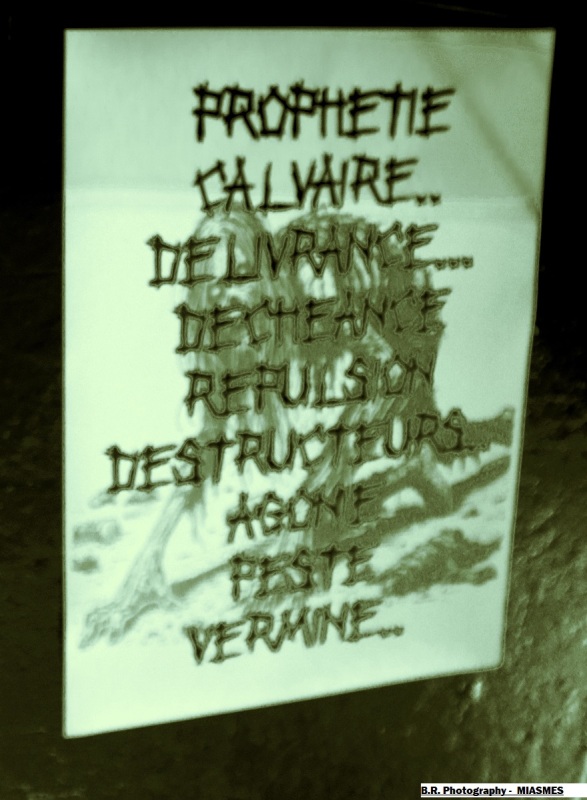 PROPHETIE
CALVAIRE..
DELIVRANCE...
DECHEANCE
REPULSION
DESTRUCTEURS...
AGONIE
PESTE
VERMINE...
B.R. Photography - MIASMES